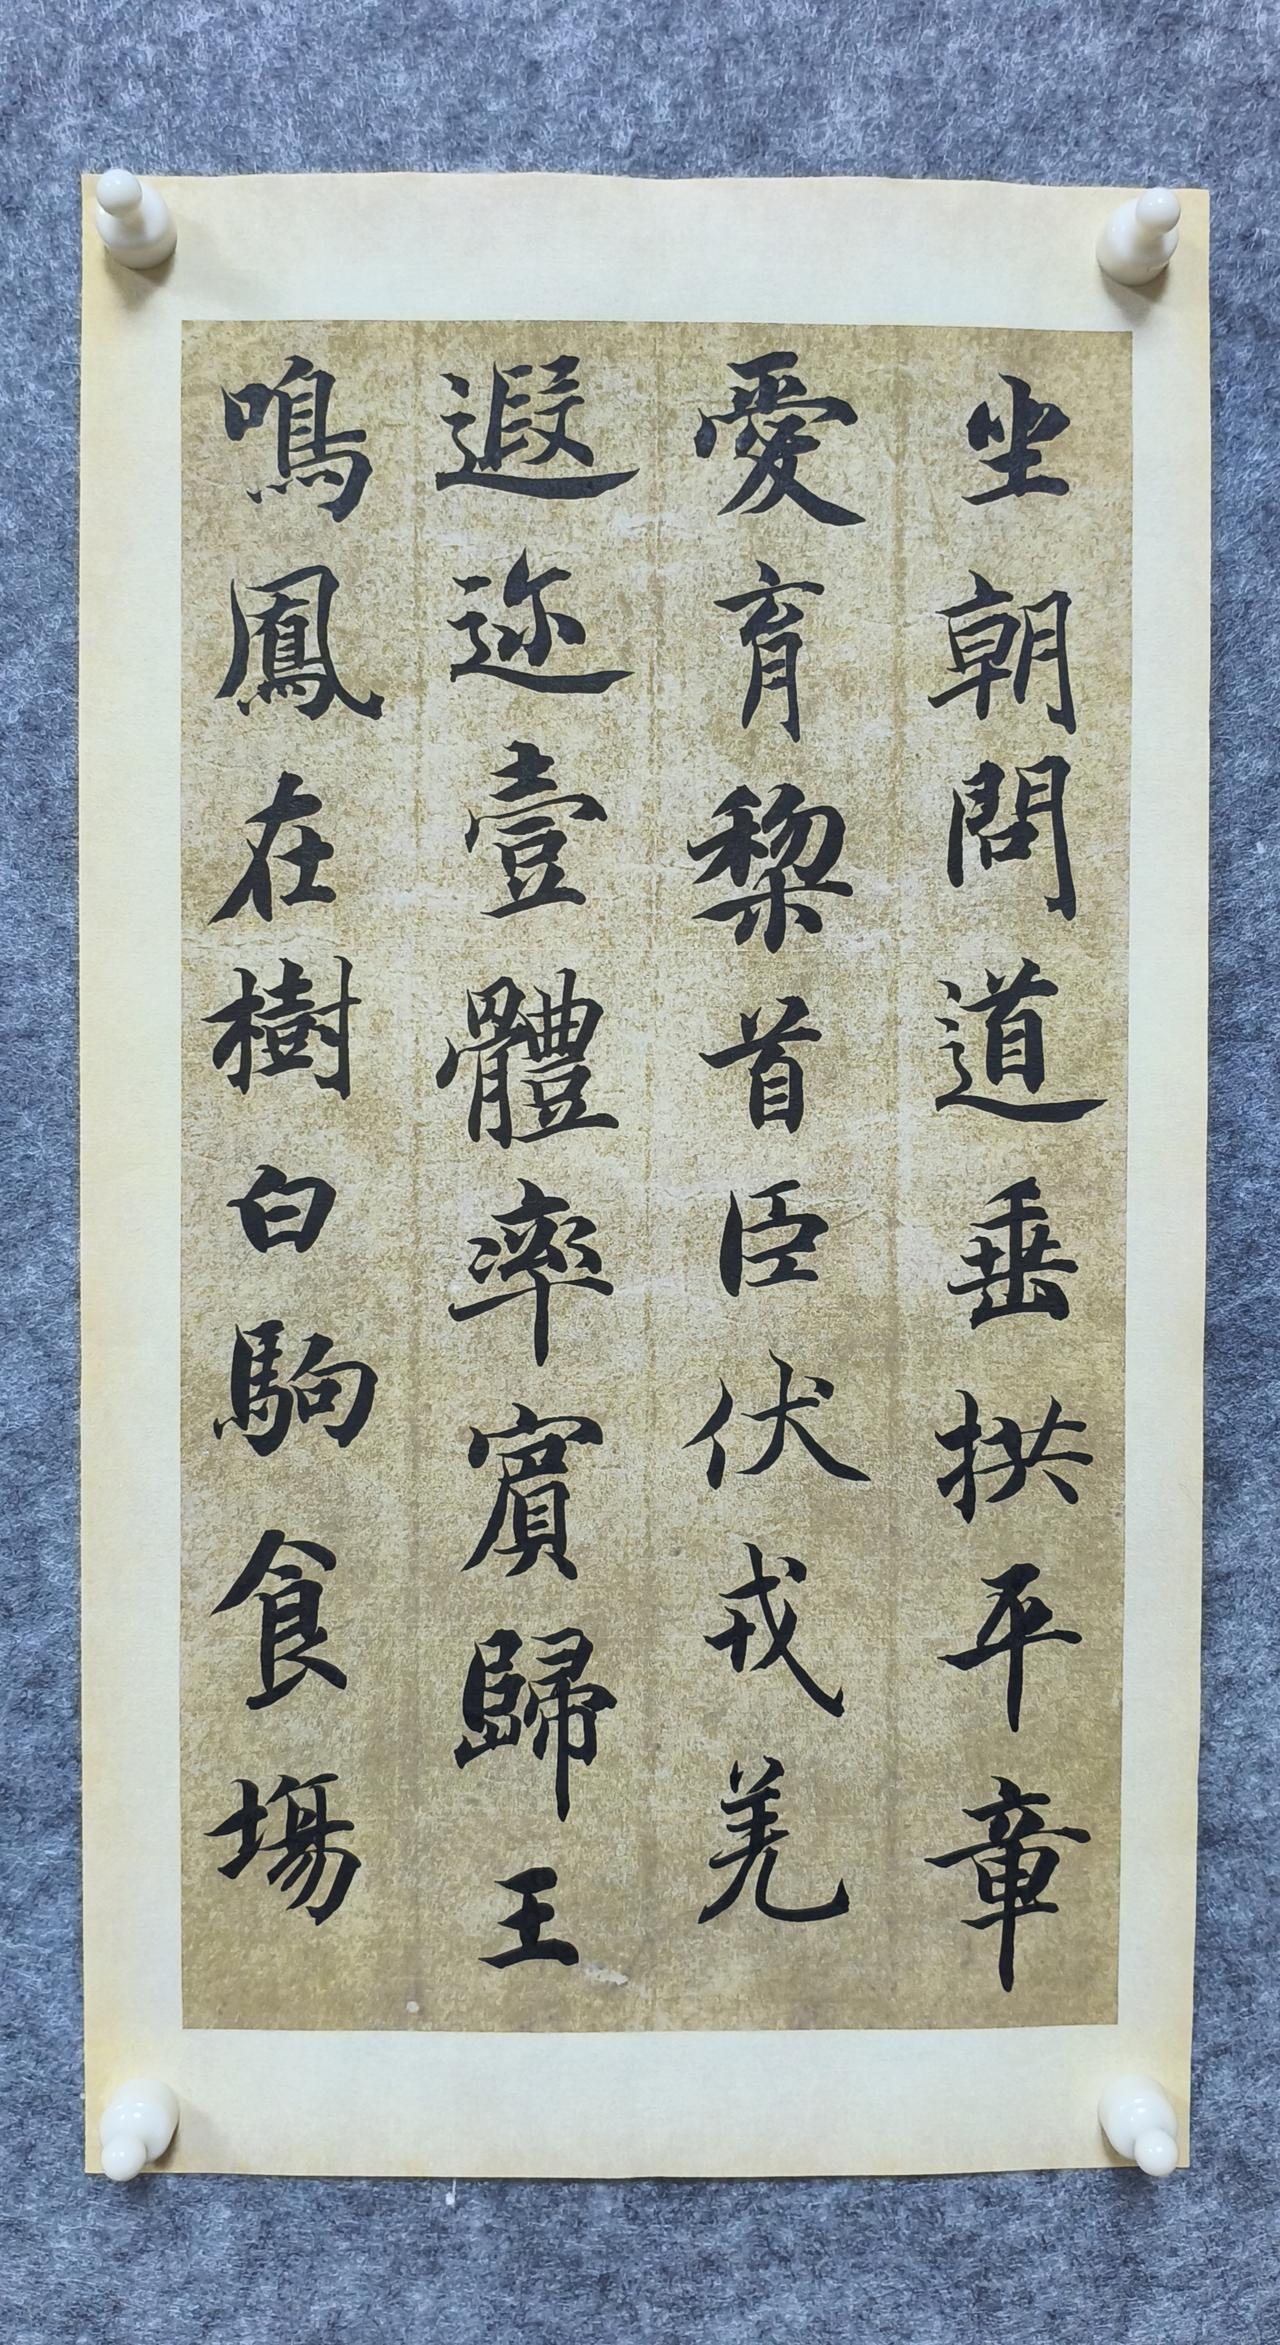 坐朝問道垂拱平章
愛育黎首臣伏戎羌
遐迩壹體率賓歸王
鳴鳳在樹白駒食場